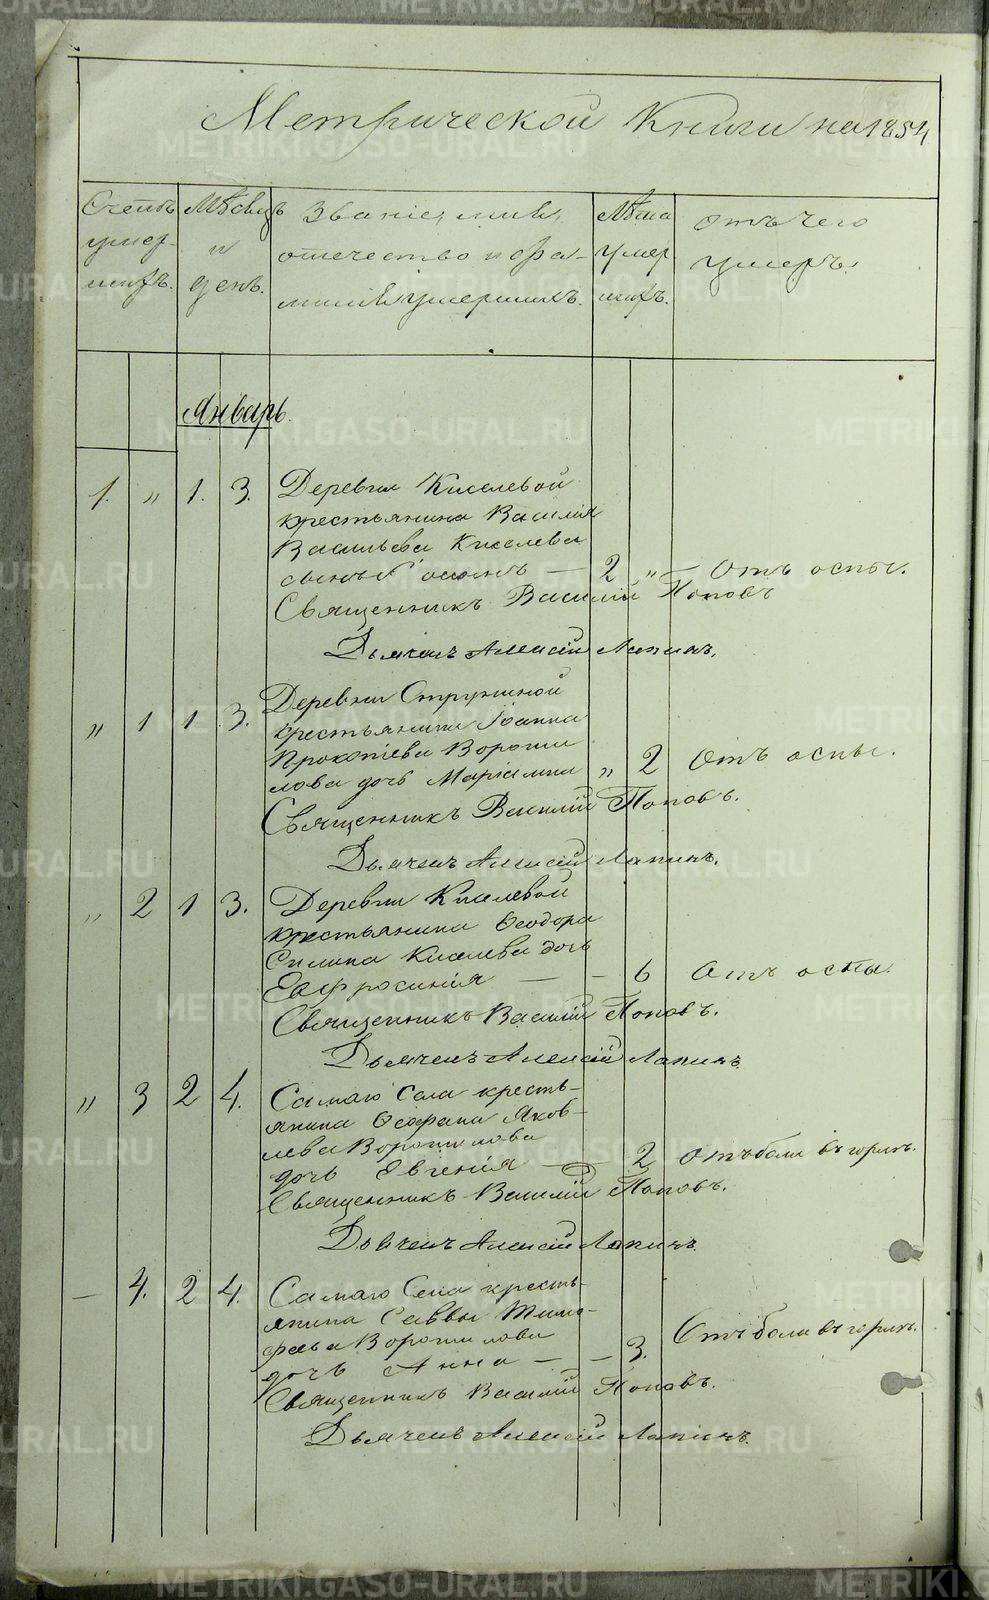 Метрической Книги на 1854
Счетъ умер- шихъ.
Мѣсяцъ и день.
Званіе, имя, отечество и фа- милія умершихъ.
Лѣта умер шихъ.
отъ чего умеръ.
Январь.
1. „ 1. 3. Деревни Киселевой
крестьянина Василія
Васильева Киселева
сынъ — 2 „ — Отъ оспы.
Священникъ Василій Поповъ
Дьячекъ Алексій Лапинъ.
„ 1 1. 3. Деревни
крестьянина Іоанна
Прокопіева Вороши
лова дочь Маріамна „ 2 Отъ оспы.
Священникъ Василій Поповъ.
Дьячекъ Алексій Лапинъ.
„ 2 1 3. Деревни Киселевой
крестьянина Ѳеодора
Силина Киселева дочь
Евфросинія — – 6 Отъ оспы.
Священникъ Василій Поповъ.
Дьячекъ Алексій Лапинъ
„ 3 2 4. Самаго Села кресть-
янина Ѳеофана Яков-
лева Ворошилова
дочь Евгенія — – 2 Отъ боли въ горлѣ.
Священникъ Василій Поповъ.
Дьячекъ Алексій Лапинъ.
— 4. 2 4. Самаго Села кресть-
янина Саввы Тимо-
феева Ворошилова
дочь Анна — – 3. Отъ боли въ горлѣ.
Священникъ Василій Поповъ.
Дьячекъ Алексій Лапинъ.
METRIKI.GASO-URAL.RU